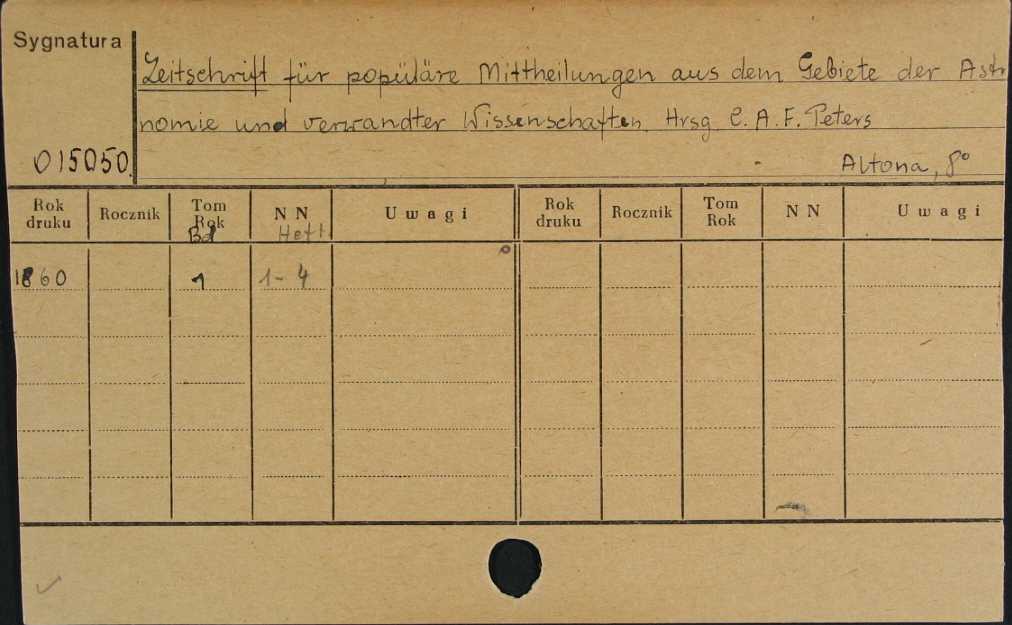 Sygnatura
Zeitschrift für popüläre Mittheilungen aus dem Gebiete der Astr
nomie und verwandter Wissenschaften. Hrsg C. A. F. Peters
015050. Altona, 8°
Rok druku Rocznik Tom Rok N N Uwagi Rok druku Rocznik Tom Rok N N Uwagi
Bd Heft
1860 1 1-4